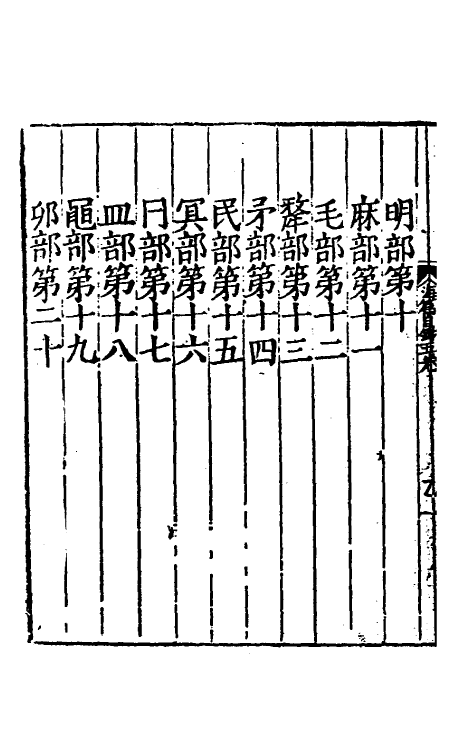 明部第十
麻部第十一
毛部第十二
犛部第十三
矛部第十四
民部第十五
㝠部第十六
冃部第十七
皿部第十八
黽部第十九
卯部第二十